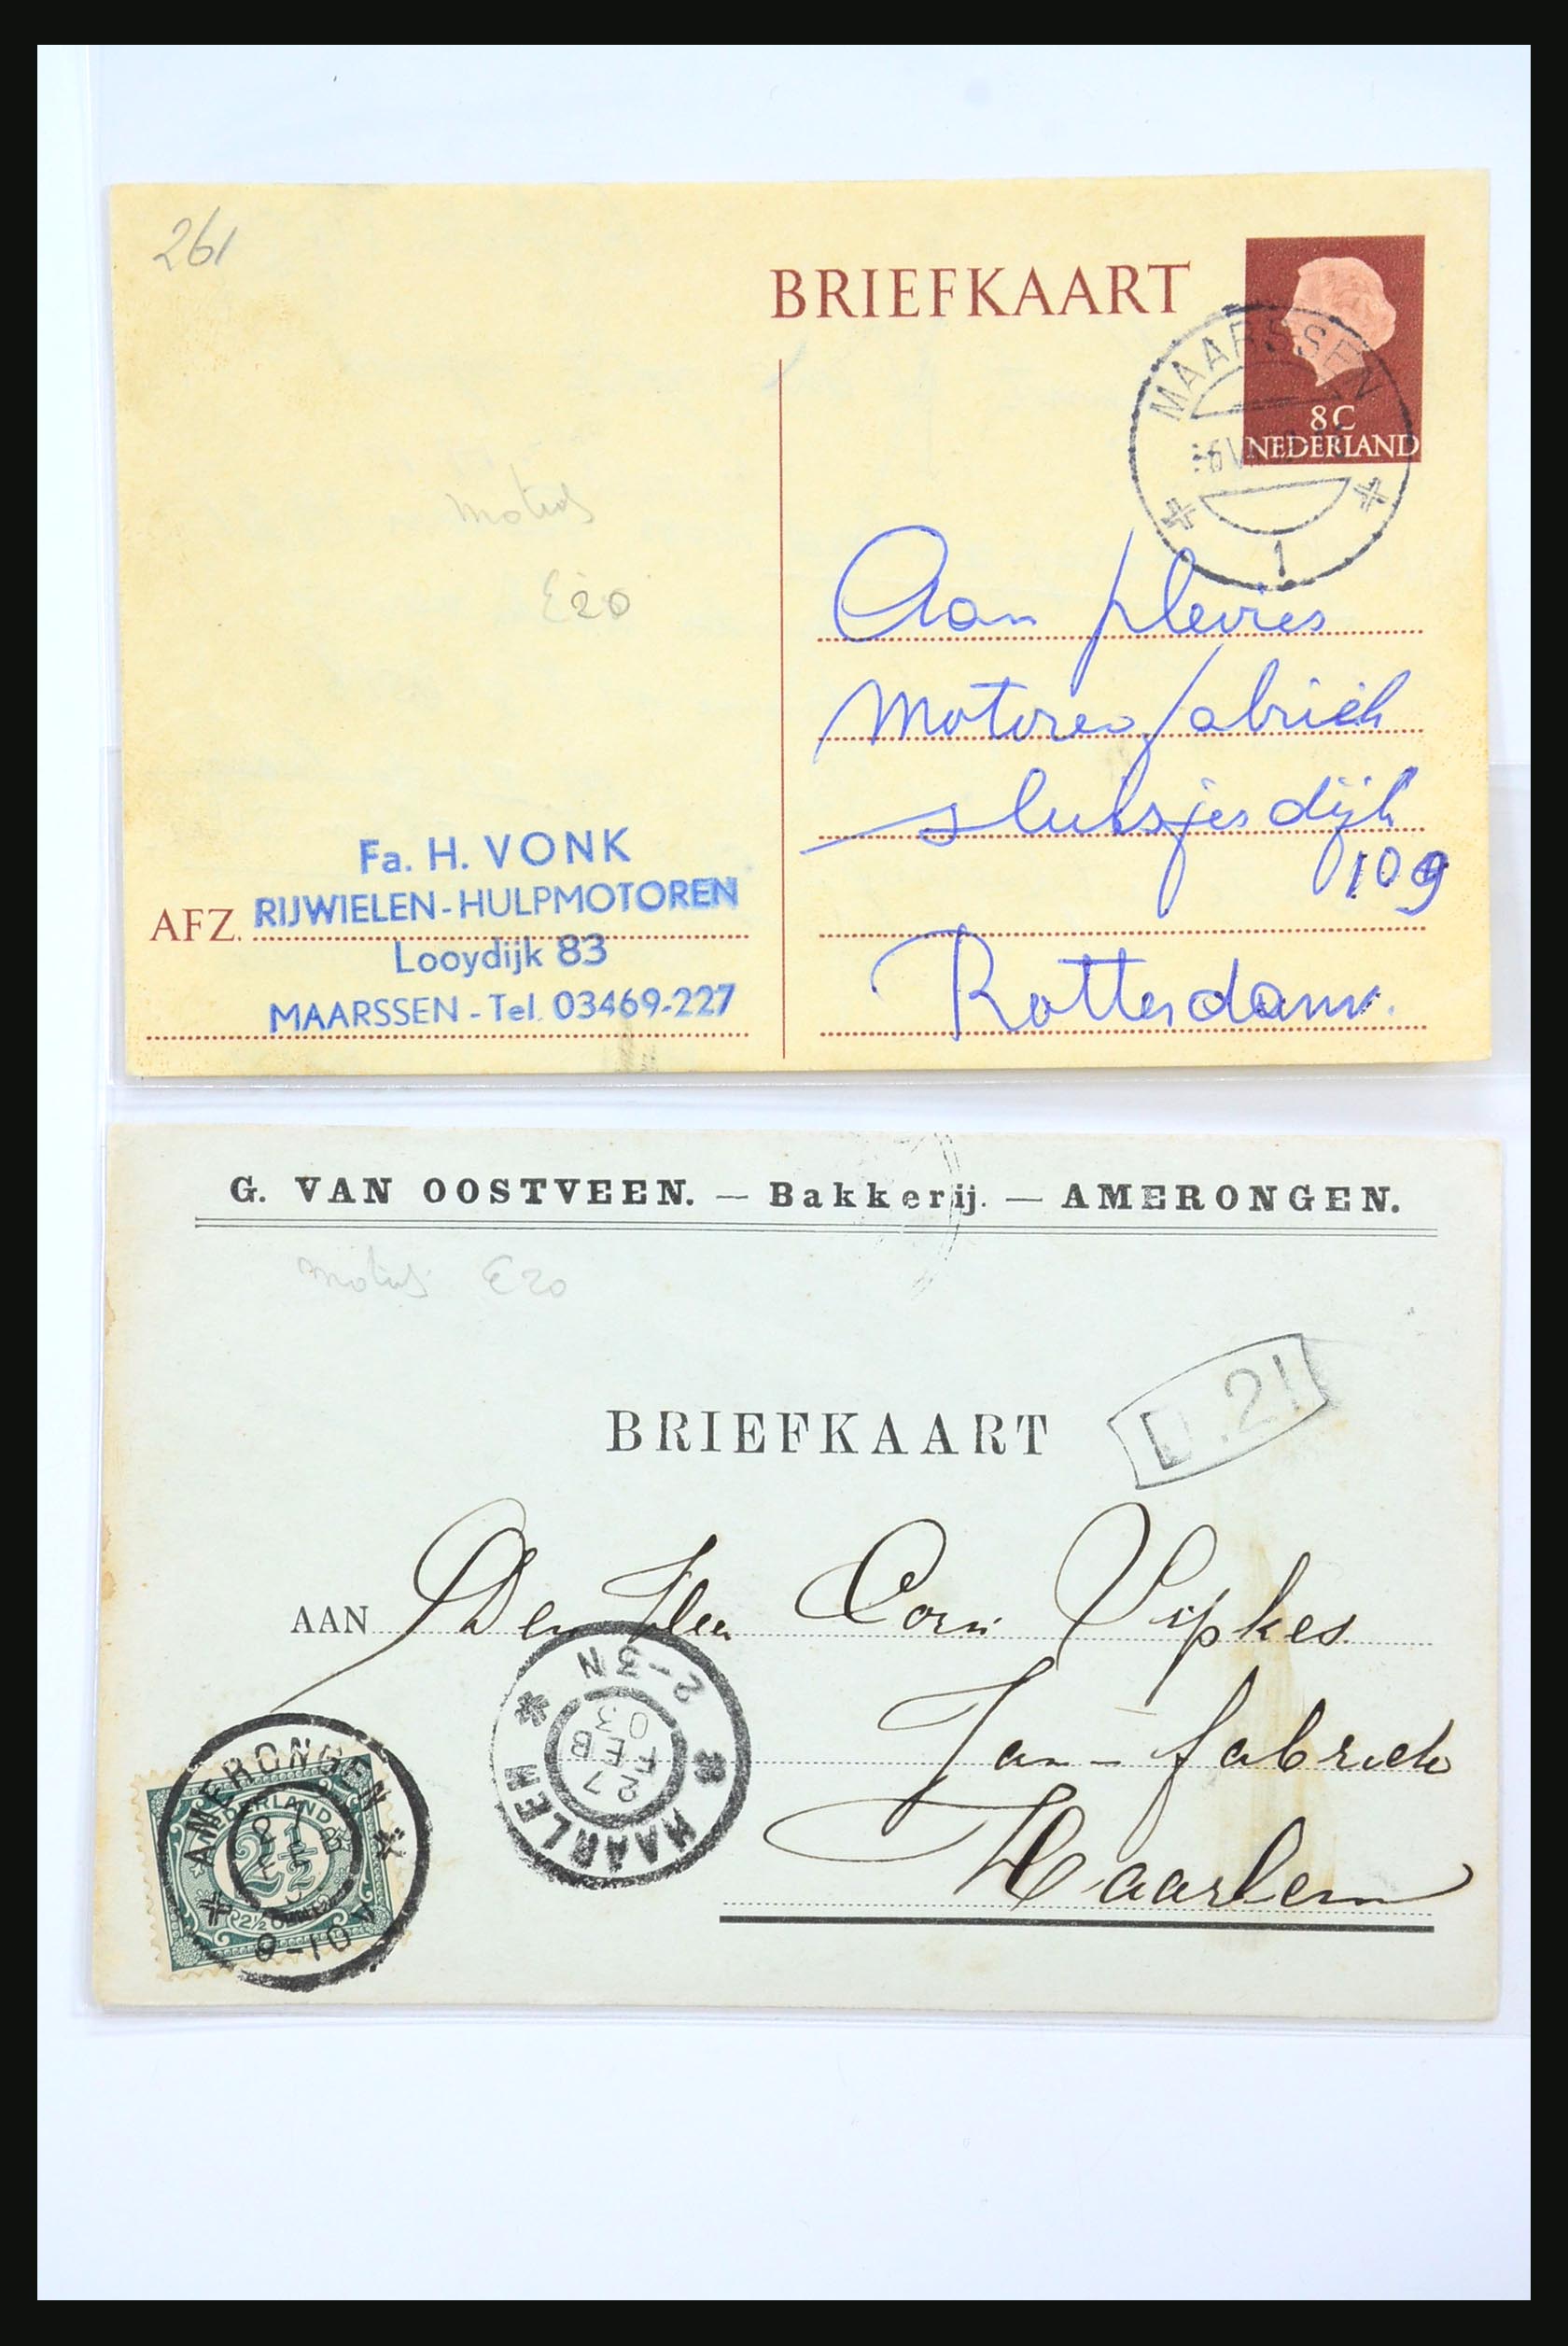 261
BRIEFKAART
8C
NEDERLAND
MAARSSEN
1
Motief
E20
Aan Plevier
Motoren fabriek
sluisjesdijk
109
Rotterdam.
Fa. H. VONK
RIJWIELEN-HULPMOTOREN
AFZ.
Looydijk 83
MAARSSEN - Tel. 03469-227
G. VAN OOSTVEEN. — Bakkerij. — AMERONGEN.
Motief E20
BRIEFKAART
D.21
AAN Den Heer Corn Vipkes
Jam-fabriek
Haarlem
HAARLEM
27
FEB
03
2-3N
AMERONGEN
NEDERLAND
27
FEB
2½
8-10 V